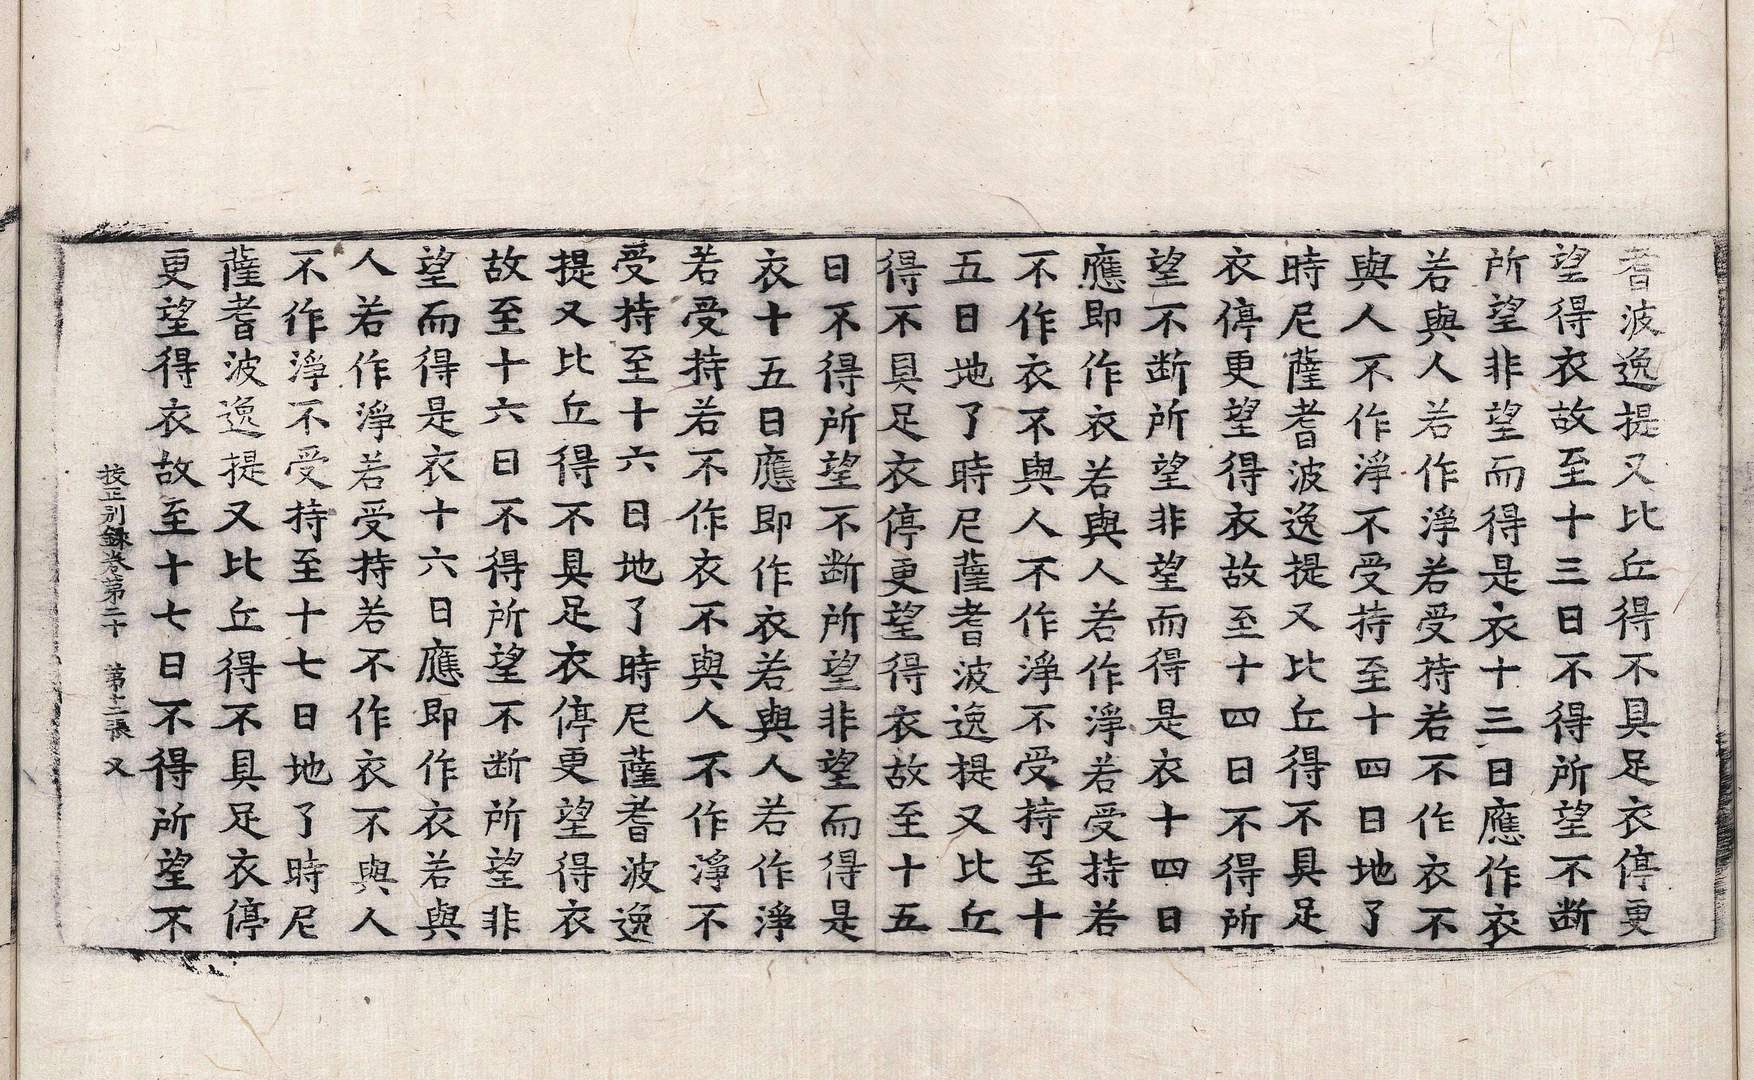 耆波逸提又比丘得不具足衣停更
望得衣故至十三日不得所望不断
所望非望而得是衣十三日應作衣
若與人若作淨若受持若不作衣不
與人不作淨不受持至十四日地了
時尼薩耆波逸提又比丘得不具足
衣停更望得衣故至十四日不得所
望不断所望非望而得是衣十四日
應即作衣若與人若作淨若受持若
不作衣不與人不作淨不受持至十
五日地了時尼薩耆波逸提又比丘
得不具足衣停更望得衣故至十五
日不得所望不断所望非望而得是
衣十五日應即作衣若與人若作淨
若受持若不作衣不與人不作淨不
受持至十六日地了時尼薩耆波逸
提又比丘得不具足衣停更望得衣
故至十六日不得所望不断所望非
望而得是衣十六日應即作衣若與
人若作淨若受持若不作衣不與人
不作淨不受持至十七日地了時尼
薩耆波逸提又比丘得不具足衣停
更望得衣故至十七日不得所望不
校正別錄卷第二十 第十二張 又